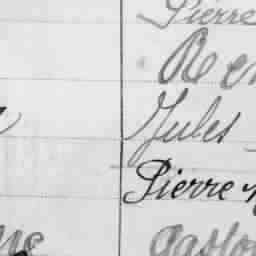 Pierre
Re
Jules
Pierre
Gasto